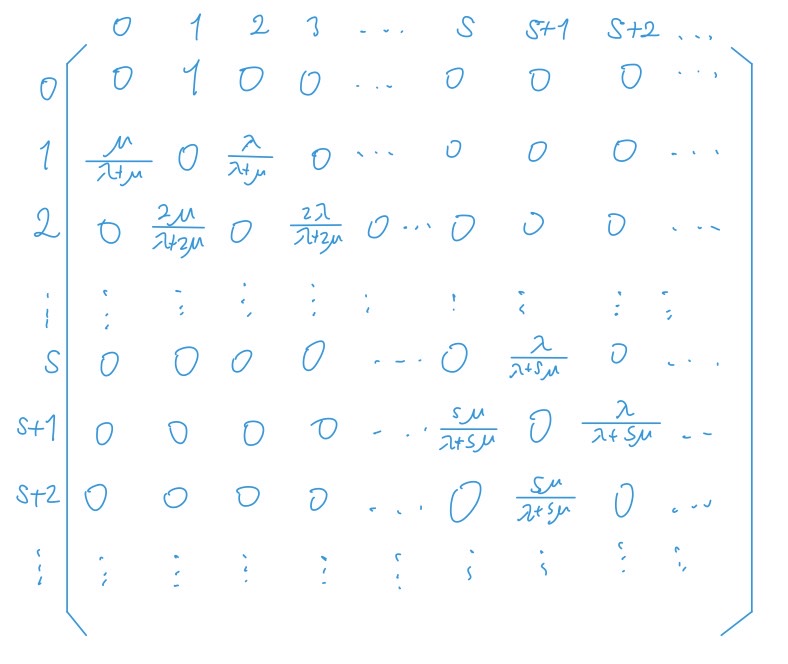 0 1 2 3 ... S S+1 S+2 ...
0 0 1 0 0 ... 0 0 0 ...
1 μ/(λ+μ) 0 λ/(λ+μ) 0 ... 0 0 0 ...
2 0 2μ/(λ+2μ) 0 2λ/(λ+2μ) 0 ... 0 0 0 ...
⋮ ⋮ ⋮ ⋮ ⋮ ⋮ ⋮ ⋮ ⋮ ⋮
S 0 0 0 0 ... 0 λ/(λ+Sμ) 0 ...
S+1 0 0 0 0 ... Sμ/(λ+Sμ) 0 λ/(λ+Sμ) ...
S+2 0 0 0 0 ... 0 Sμ/(λ+Sμ) 0 ...
⋮ ⋮ ⋮ ⋮ ⋮ ⋮ ⋮ ⋮ ⋮ ⋮